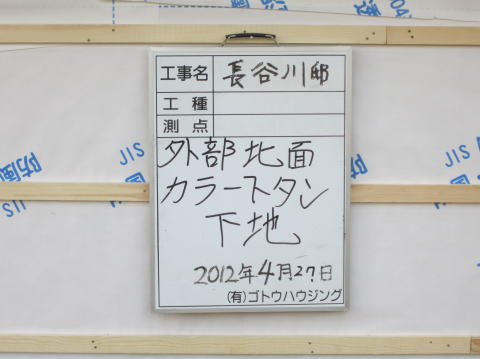 工事名 長谷川邸
工種
測点
外部北面
カラートタン
下地
2012年4月27日
(有)ゴトウハウジング
JIS
防風
JIS
JIS
防
JIS